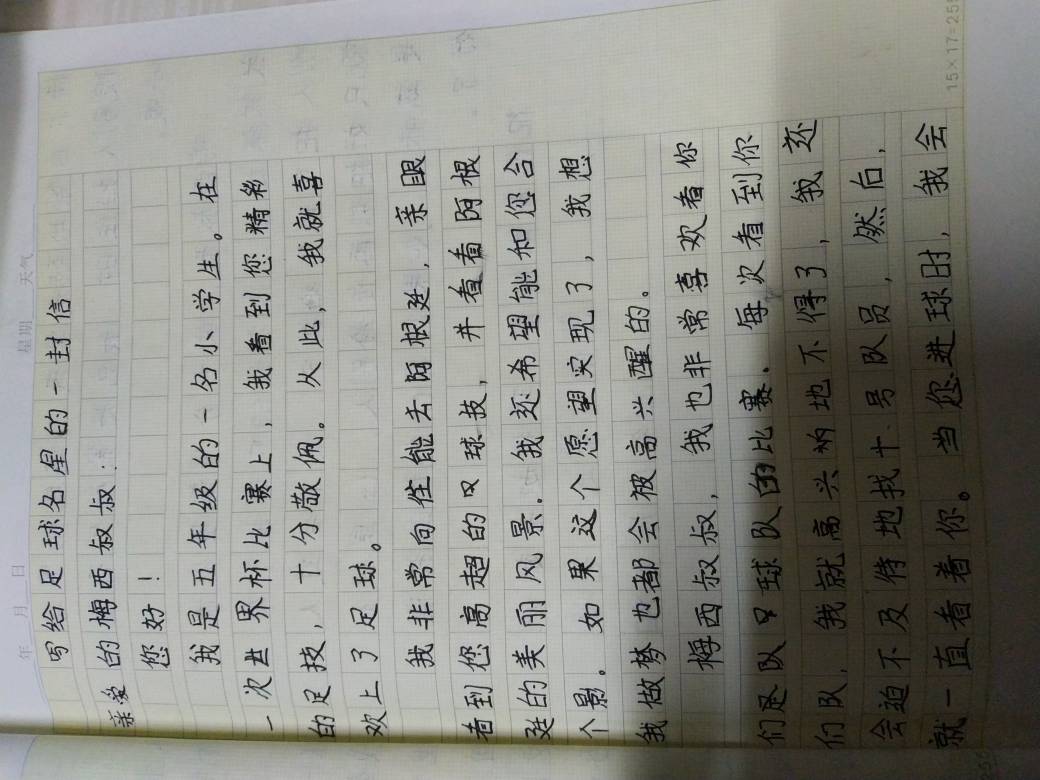 年 月 日 星期 天气
写给足球名星的一封信
亲爱的梅西叔叔:
您好!
我是五年级的一名小学生。在
一次世界杯比赛上,我看到您精彩
的足技,十分敬佩。从此,我就喜
欢上了足球。
我非常向住能去阿根廷,亲眼
看到您高超的口球技,并看看阿根
廷的美丽风景。我还希望能和您合
个影。如果这个愿望实现了,我想
我做梦也都会被高兴醒的。
梅西叔叔,我也非常喜欢看你
们足队口球队的比赛.每次看到你
们队,我就高兴的地不得了,我还
会迫不及待地找十号队员,然后,
就一直看着你。当您进球时,我会
15×17=255